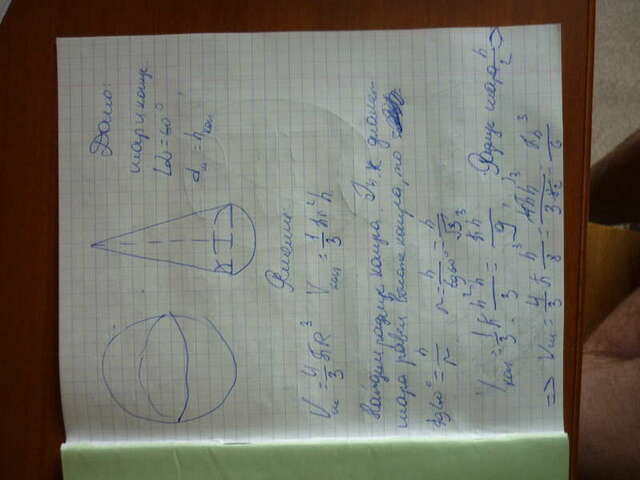 Дано:
шар и конус
∠α = 60°
d ш = h кон
Решение:
V ш = 4/3 πR³ V кон = 1/3 πr²h
Найдем радиус конуса. Т. к диамет
шара равен высоте конуса, то
tg60° = h/r r = h/tg60° = h/√3
V кон = 1/3 π h²/3 h = πh³/9, Радиус шара h/2 =>
=> V ш = 4/3 π h³/8 = 4πh³/3·2 = πh³/6